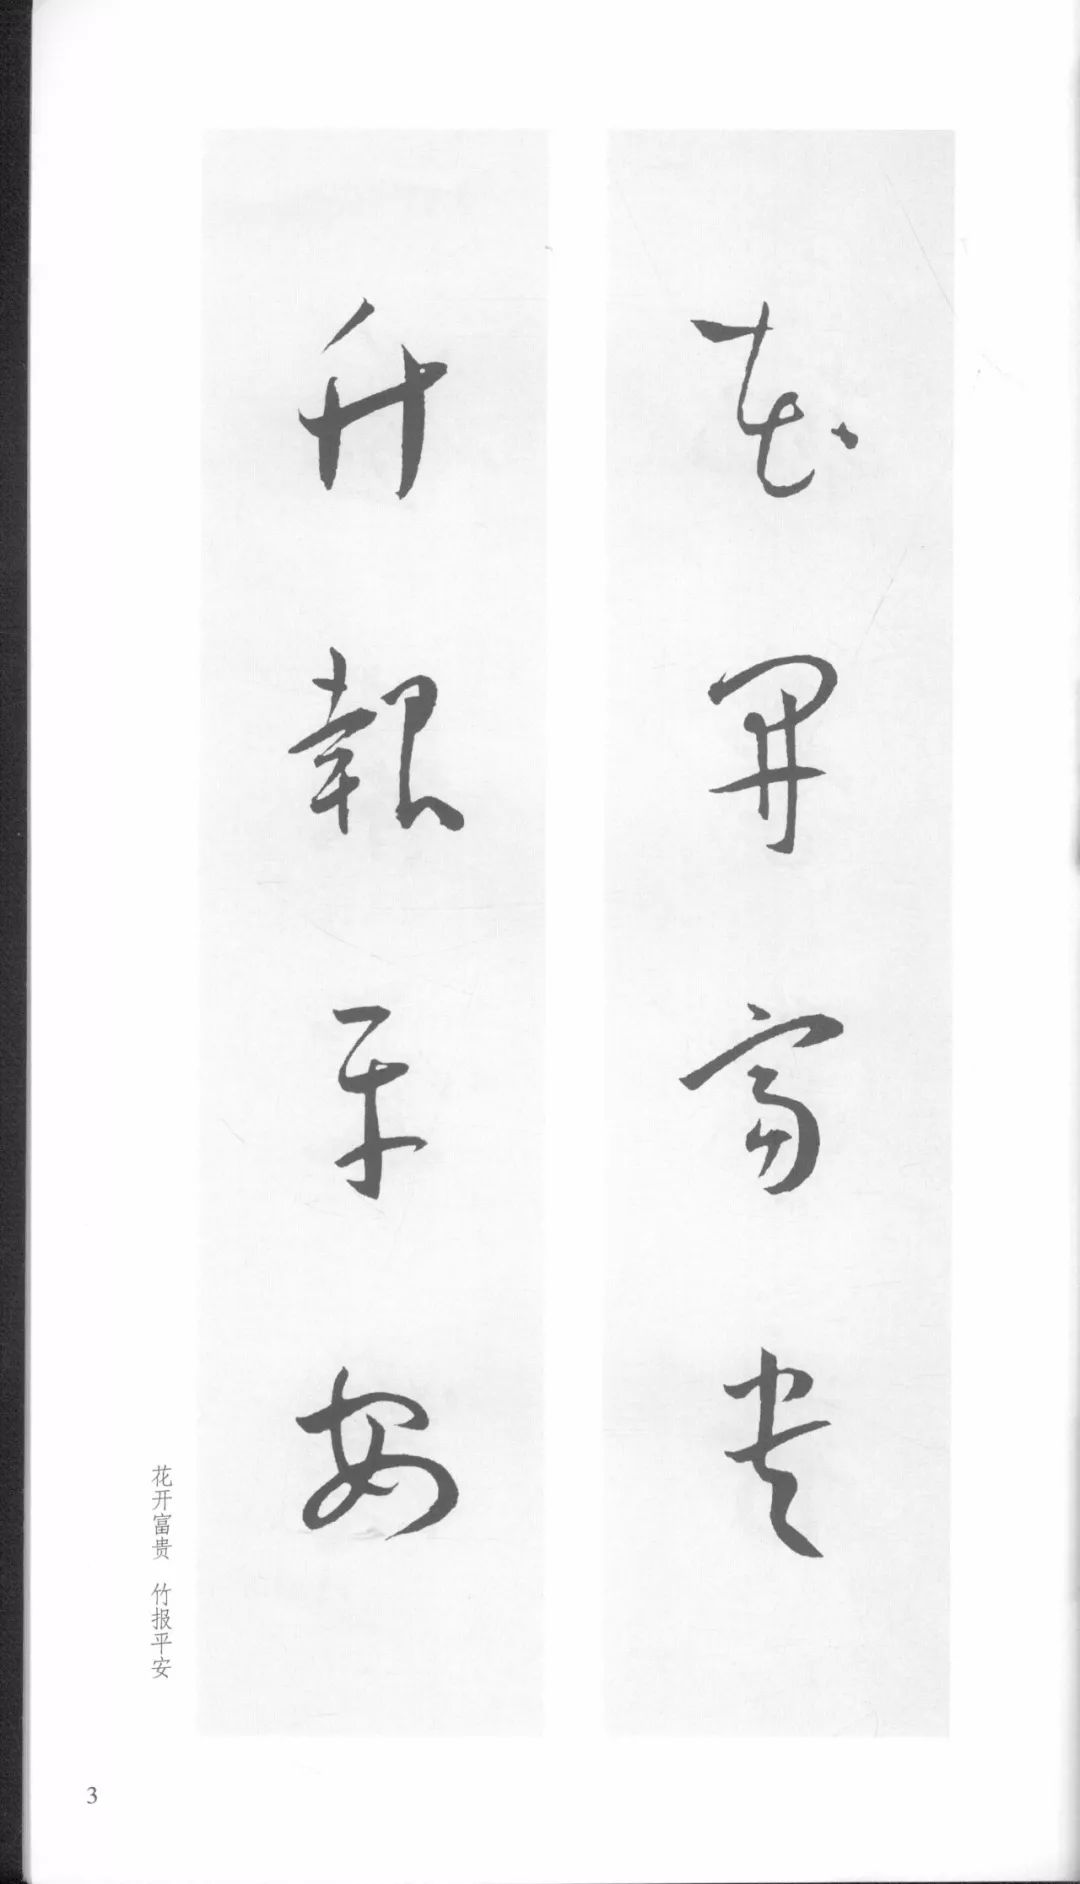 花開富貴
竹報平安
花开富贵 竹报平安
3